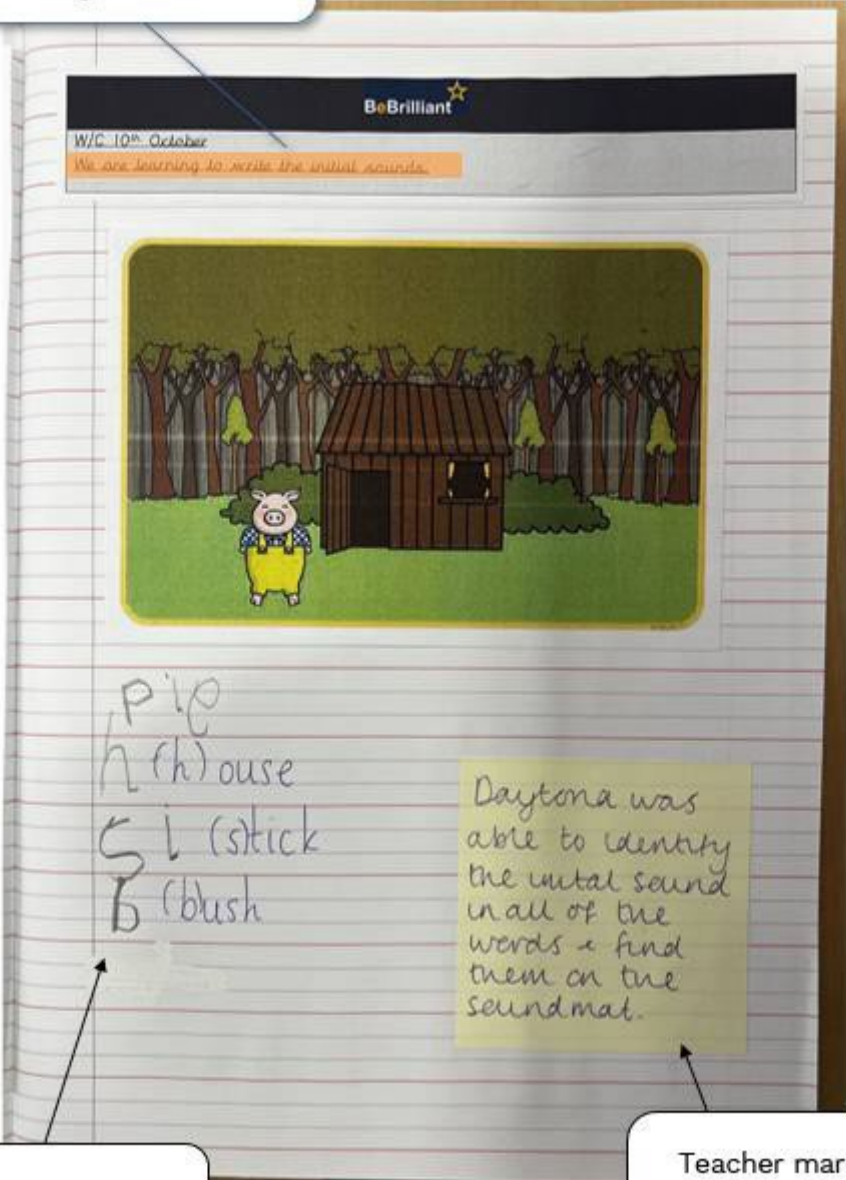 BeBrilliant
W/C 10th October
We are learning to write the initial sounds.
pig
h (h)ouse
s i (s)tick
b (b)ush
Daytona was
able to identify
the inital sound
in all of the
words & find
them on the
soundmat.
Teacher mar